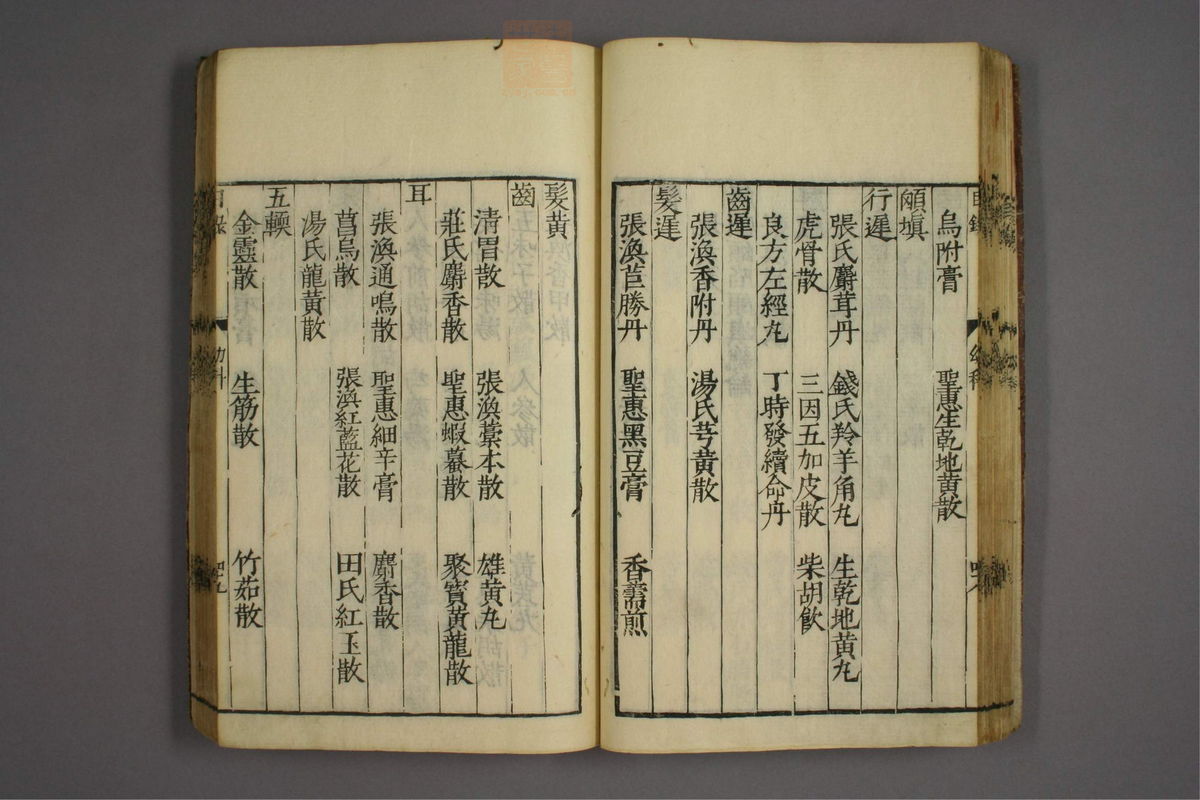 目錄 幼科
烏附膏 聖惠生乾地黃散
頄塡
行遲
張氏麝茸丹 錢氏羚羊角丸 生乾地黃丸
虎骨散 三因五加皮散 柴胡飲
良方左經丸 丁時發續命丹
齒遲
張渙香附丹 湯氏芎黃散
髮遲
張渙苣勝丹 聖惠黑豆膏 香薷煎
髮黃
齒
清胃散 張渙藁本散 雄黃丸
莊氏麝香散 聖惠蝦蟇散 聚寳黃龍散
耳
張渙通鳴散 聖惠細辛膏 麝香散
菖烏散 張渙紅藍花散 田氏紅玉散
湯氏龍黃散
五輭
金靈散 生筋散 竹茹散
目錄 幼科